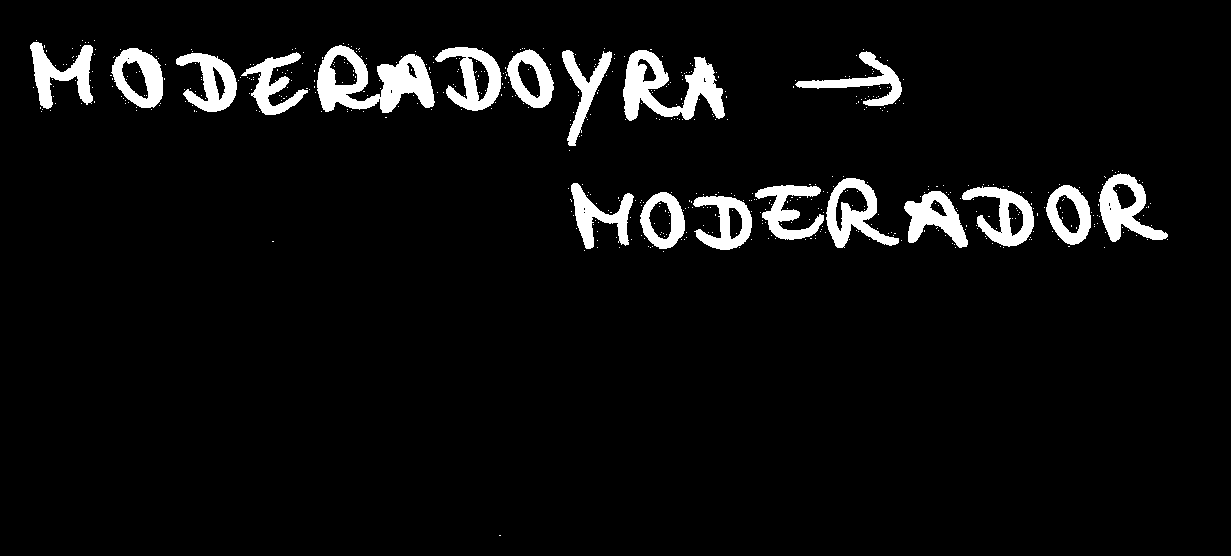 MODERADOYRA →
MODERADOR